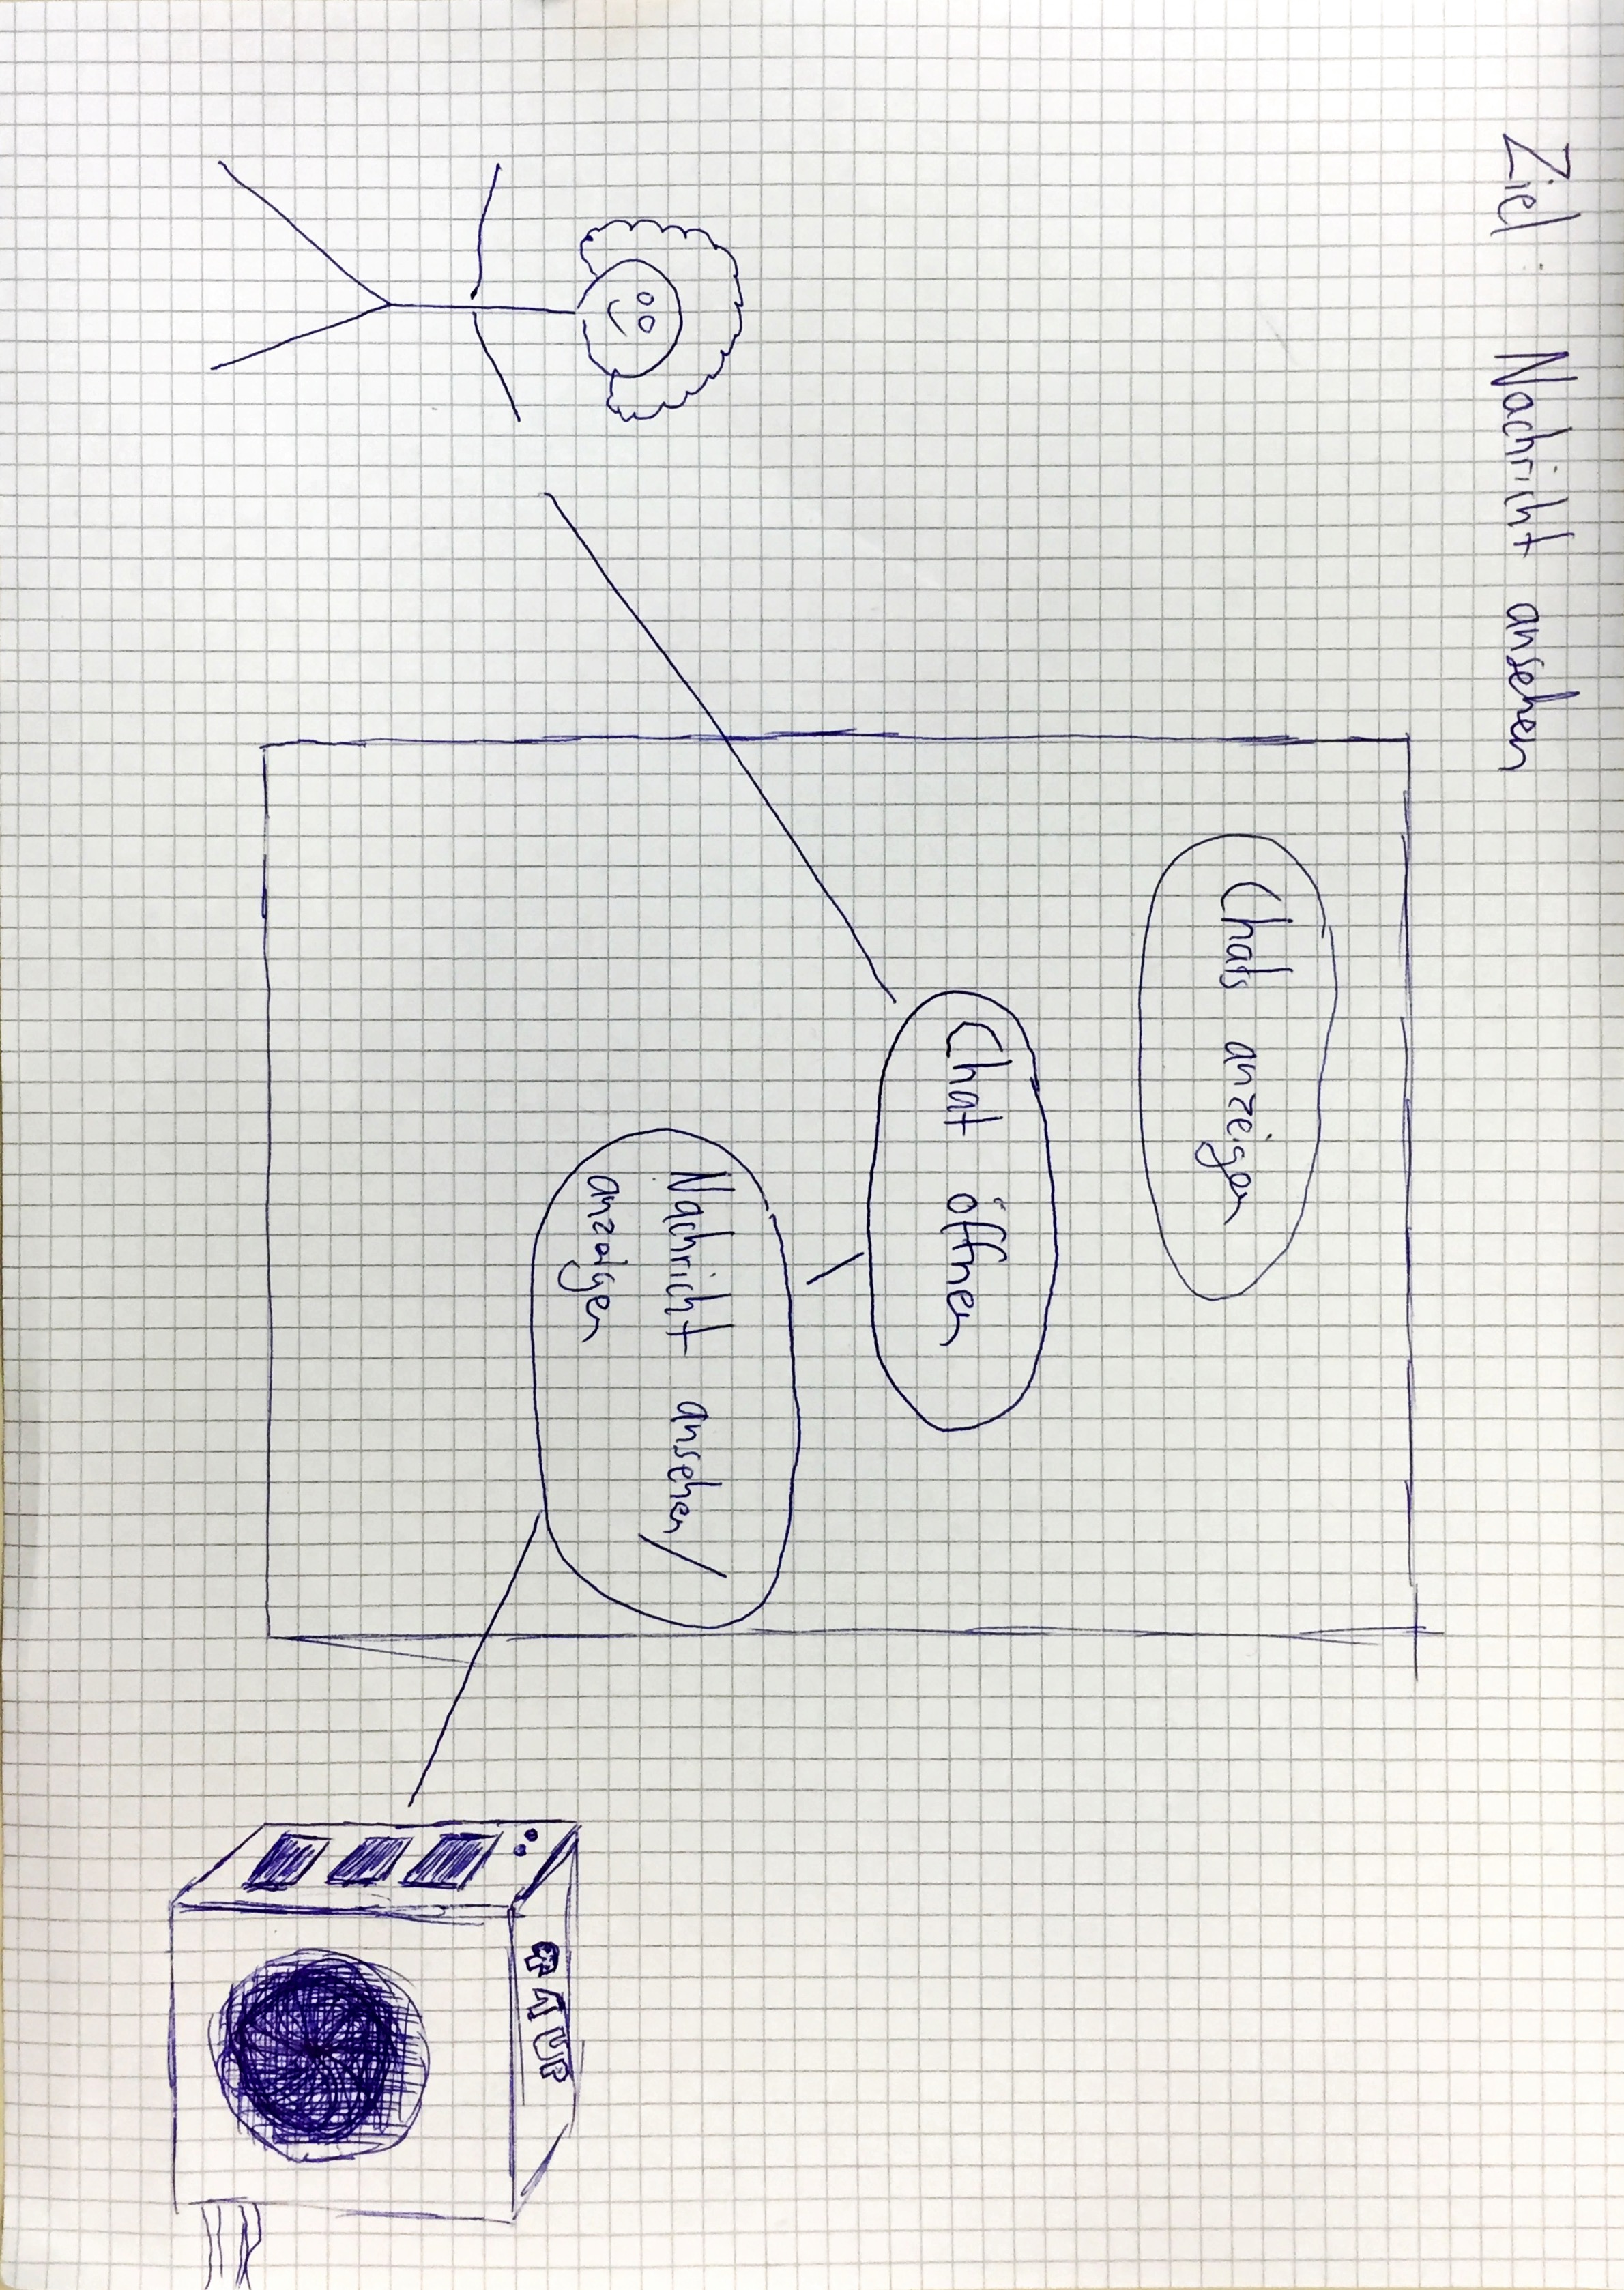 Ziel: Nachricht ansehen
Chats anzeigen
Chat öffnen
Nachricht ansehen/
anzeigen
1UP